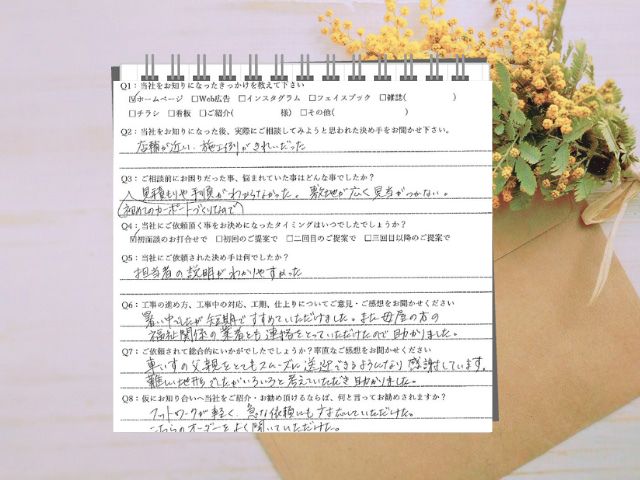 Q1：当社をお知りになったきっかけを教えて下さい
☑ホームページ □Web広告 □インスタグラム □フェイスブック □雑誌( )
□チラシ □看板 □ご紹介( 様) □その他( )
Q2：当社をお知りになった後、実際にご相談してみようと思われた決め手をお聞かせ下さい。
店舗が近い、施工例がきれいだった
Q3：ご相談前にお困りだった事、悩まれていた事はどんな事でしたか？
見積もりや手順がわからなかった。敷地が広く見当がつかない。
(初めてのカーポートづくりなので)
Q4：当社にご依頼頂く事をお決めになったタイミングはいつでしたでしょうか？
☑初面談のお打合せで □初回のご提案で □二回目のご提案で □三回目以降のご提案で
Q5：当社に依頼された決め手は何でしたか？
担当者の説明がわかりやすかった
Q6：工事の進め方、工事中の対応、工期、仕上りについてご意見・ご感想をお聞かせください
暑い中でしたが短期ですすめていただけました。また母屋の方の
福祉関係の業者とも連絡をとっていただけたので助かりました。
Q7：ご依頼されて総合的にいかがでしたでしょうか？率直なご感想をお聞かせください
車いすの父親をとてもスムーズに送迎できるようになり感謝しています。
難しい地形でしたがいろいろと考えていただき助かりました。
Q8：仮にお知り合いへ当社をご紹介・お勧め頂けるならば、何と言ってお勧めされますか？
フットワークが軽く、急な依頼にも対応していただけた。
こちらのオーダーをよく聞いていただけた。